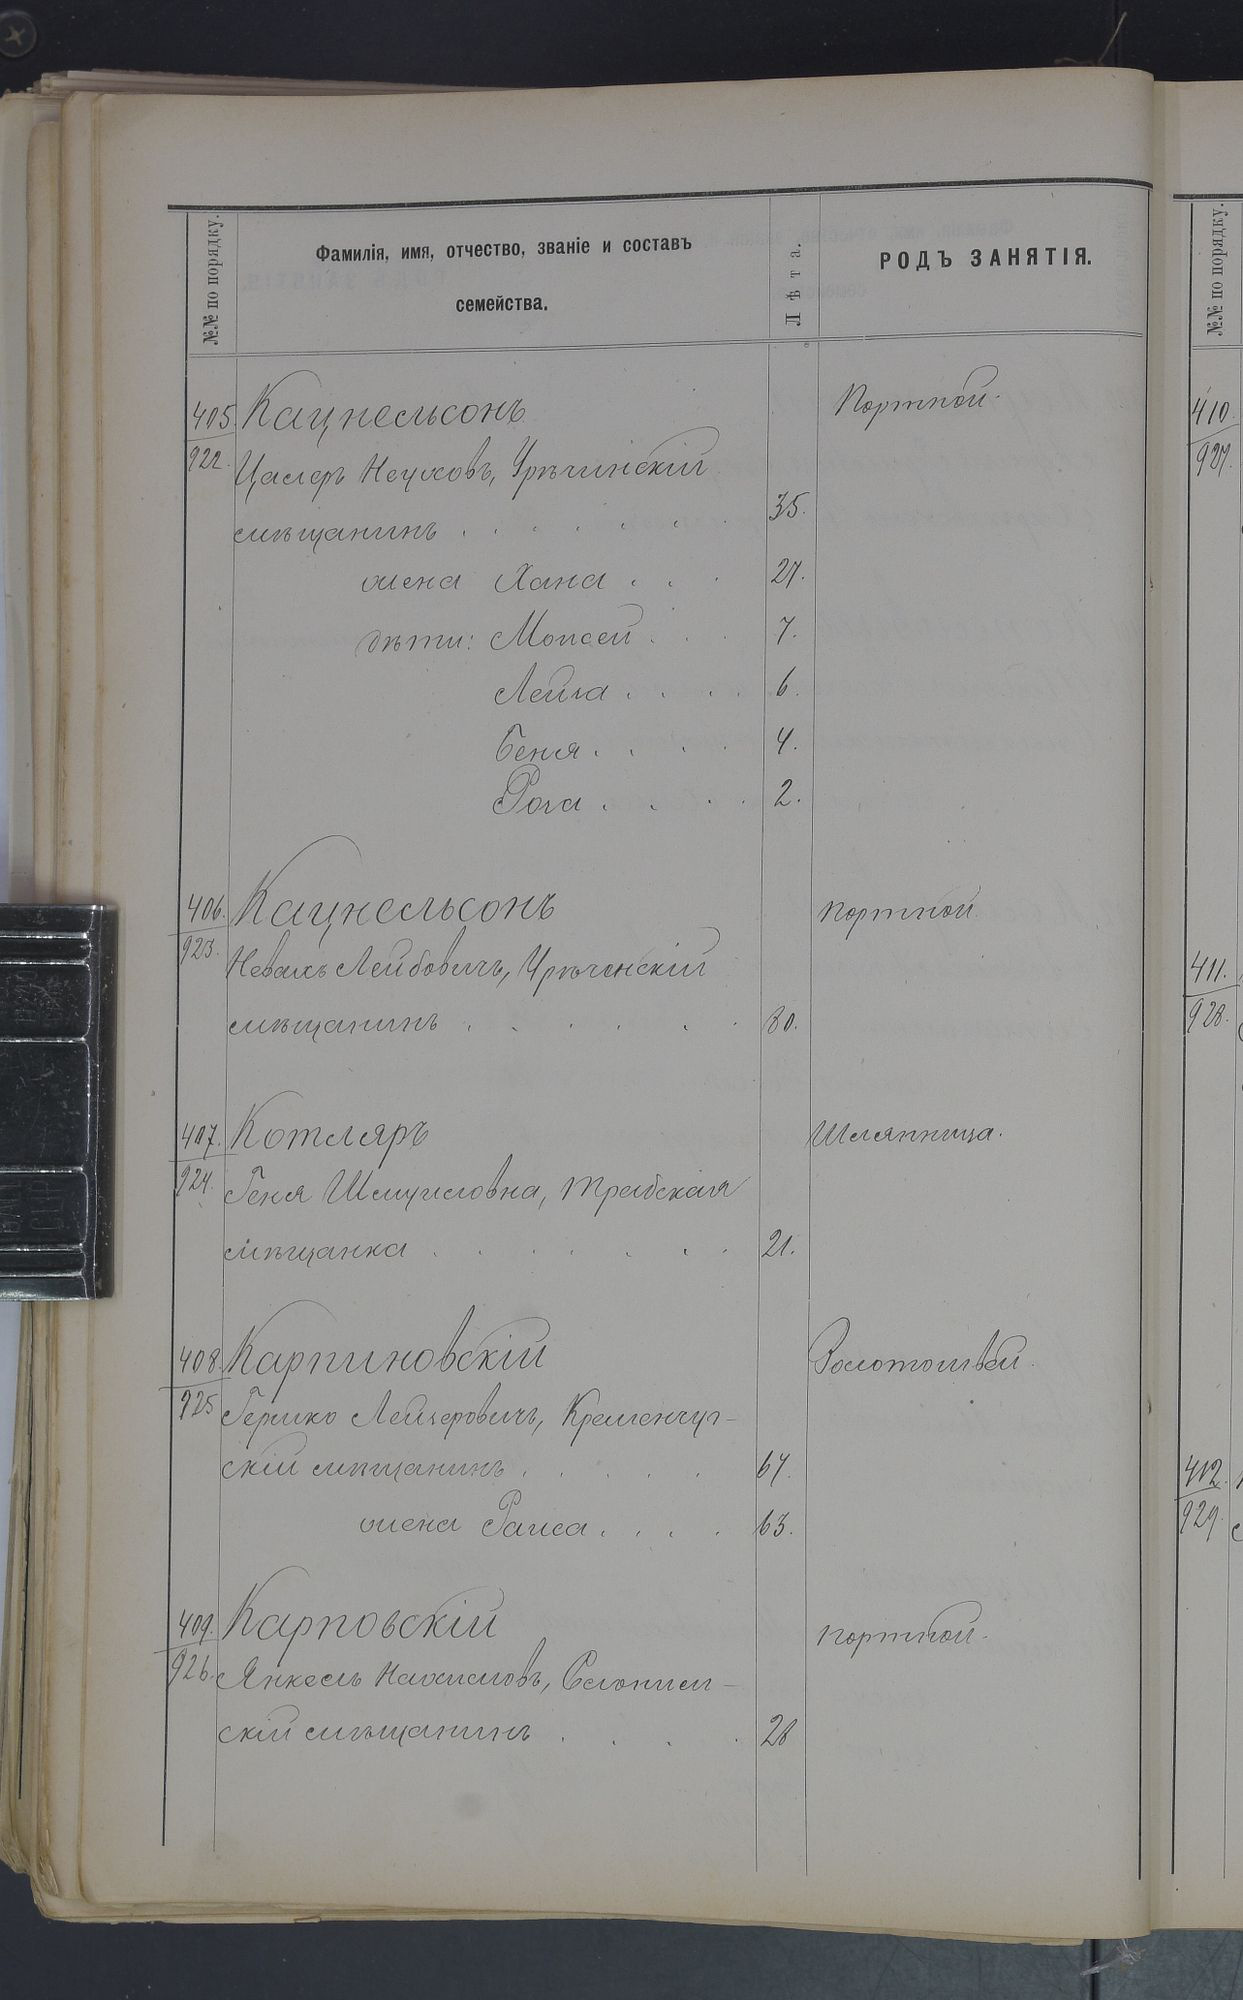 №№ по порядку.
Фамилія, имя, отчество, званіе и составъ
семейства.
Лѣта.
РОДЪ ЗАНЯТІЯ.
405. Кацнельсонъ Портной.
922. Цалеръ Неуховъ, Урѣчинскій
мѣщанинъ . . . . . . . 35.
жена Хана . . . 27.
дѣти: Моисей . . . 7.
Лейга . . . . 6.
Беня . . . . 4.
Рога . . . . 2.
406. Кацнельсонъ портной.
923. Невахъ Лейбовичъ, Урѣченскій
мѣщанинъ . . . . . . 80.
407. Котляръ Шляпница.
924. Геня Шмуиловна, Трабская
мѣщанка . . . . . . . 21.
408. Карпиновскій Золотошвей.
925 Гершко Лейзеровичъ, Кременчуг-
скій мѣщанинъ . . . . . 67.
жена Раиса . . . . 63.
409. Карповскій портной.
926. Янкель Нахимовъ,
скій мѣщанинъ . . . . 28
№№ по порядку.
410.
927.
411.
928.
412.
929.